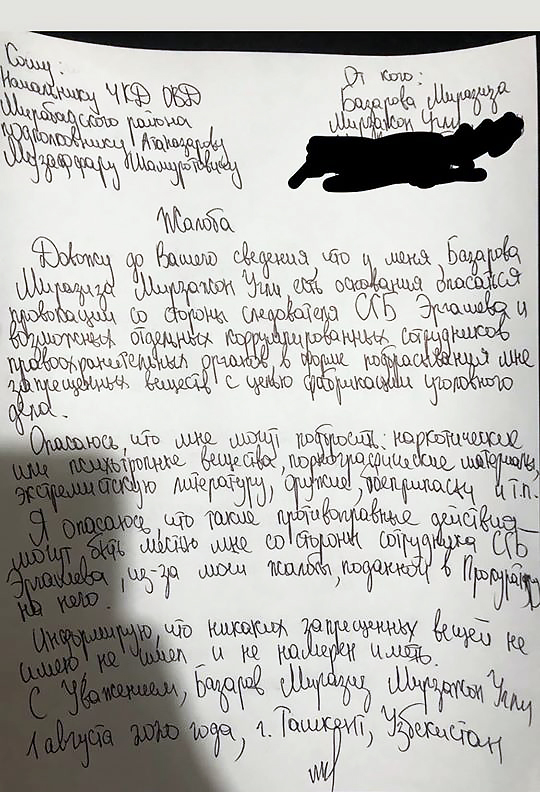 Кому:
Начальнику УКД ОВД
Мирабадского района
подполковнику Атаназарову
Музаффару Шамуротовичу
От кого:
Базарова Миразиза
Мирзажон Угли
Жалоба
Довожу до Вашего сведения что у меня, Базарова
Миразиза Мирзажон Угли есть основания опасаться
провокации со стороны следователя СГБ Эргашева и
возможных отдельных коррумпированных сотрудников
правоохранительных органов в форме подбрасывания мне
запрещенных веществ с целью фабрикации уголовного
дела.
Опасаюсь, что мне могут подбросить: наркотические
или психотропные вещества, порнографические материалы,
экстремистскую литературу, оружие, боеприпасы и т.п.
Я опасаюсь, что такие противоправные действия
могут быть местью мне со стороны сотрудника СГБ
Эргашева, из-за моей жалобы, поданной в Прокуратуру
на него.
Информирую, что никаких запрещенных вещей не
имею не имел и не намерен иметь.
С Уважением, Базаров Миразиз Мирзажон Угли
1 августа 2020 года, г. Ташкент, Узбекистан